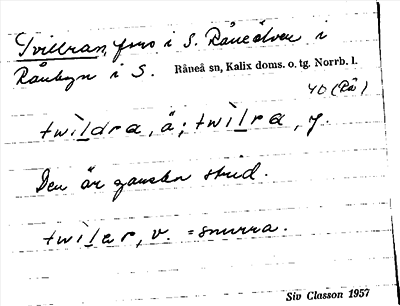 Tvillran, fors i S. Råneälven i
Rånbyn i S. Råneå sn, Kalix doms. o. tg. Norrb. l.
40 (Rå)
twìldra, ä; twìlra, y.
Den är ganska strid.
twìlar, v. = snurra.
Siv Classon 1957